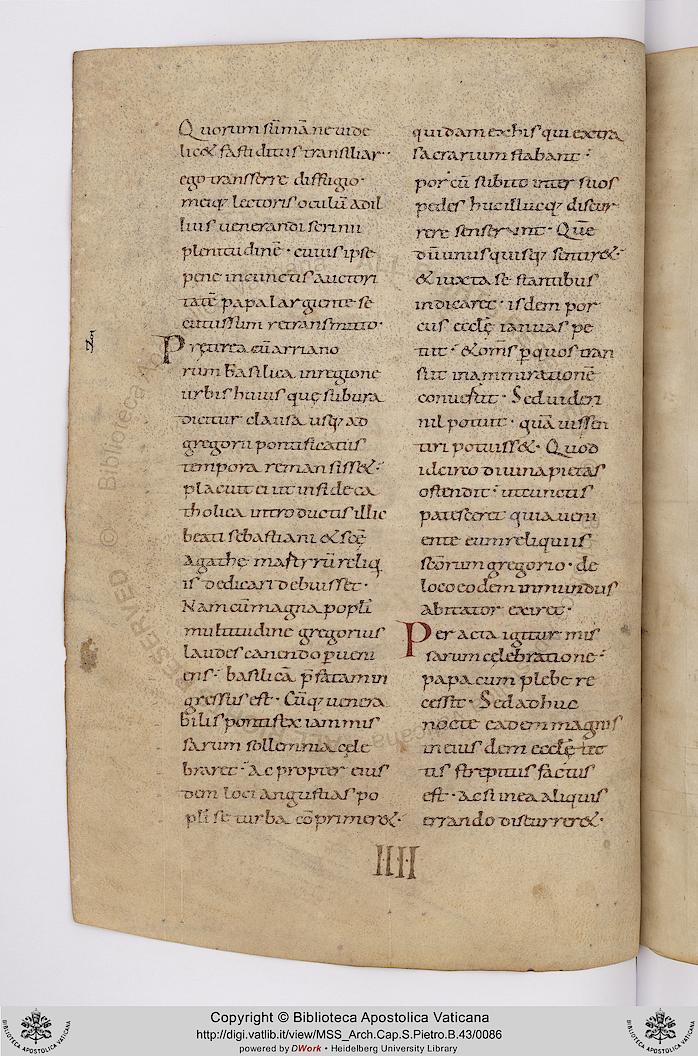 Quorum sūmā ne uide
lic& fastiditus transiliar··
ego transferre diffugio·
meiq; lectoris oculū ad il
lius uenerandi scrinii
plentudinē· cuius ipse
pene in cunctis auctori
tatē papa largiente se
cutus sum retransmitto·
Pręterea cū arriano
rum basilica in regione
urbis huius quę subura
dicitur clausa usq; ad
gregorii pontificatus
tempora remansiss&·
placuit ei ut in fide ca
tholica introductis illic
beati sebastiani & scē
Agathę martyrū reliq
is dedicari debuisset·
Nam cū magna popli
multitudine gregorius
laudes canendo p̱ueni
ens· basilicā p̄fatam in
gressus est· Cūq; uenera
bilis pontifex iam mis
sarum sollemnia cęle
braret· Ac propter eius
dem loci angustias po
pli se turba cōprimer&·
quidam ex his qui extra
sacrarium stabant·
porcū subito inter suos
pedes huc illucq; discur
rere senserunt· Quē
dū unusquisq; sentir&·
& iuxta se stantibus
indicaret· isdem por
cus ecclę ianuas pe
tiit· & om̄s p̱ quos tran
siit in ammirationē
conuertit· Sed uideri
nil potuit· quā uis sen
tiri potuiss&· Quod
idcirco diuina pietas
ostendit· ut cunctis
patesceret quia ueni
ente eum reliquiis
scōrum gregorio· de
loco eodem inmundus
abitator exiret·
Per acta igitur mis
sarum celebratione·
papa cum plebe re
cessit· Sed adhuc
nocte eadem magnus
in eius dem ecclę tec
tis strepitus factus
est· Ac si in ea aliquis
errando discurrer&·
IIII
Copyright © Biblioteca Apostolica Vaticana
http://digi.vatlib.it/view/MSS_Arch.Cap.S.Pietro.B.43/0086
powered by DWork • Heidelberg University Library